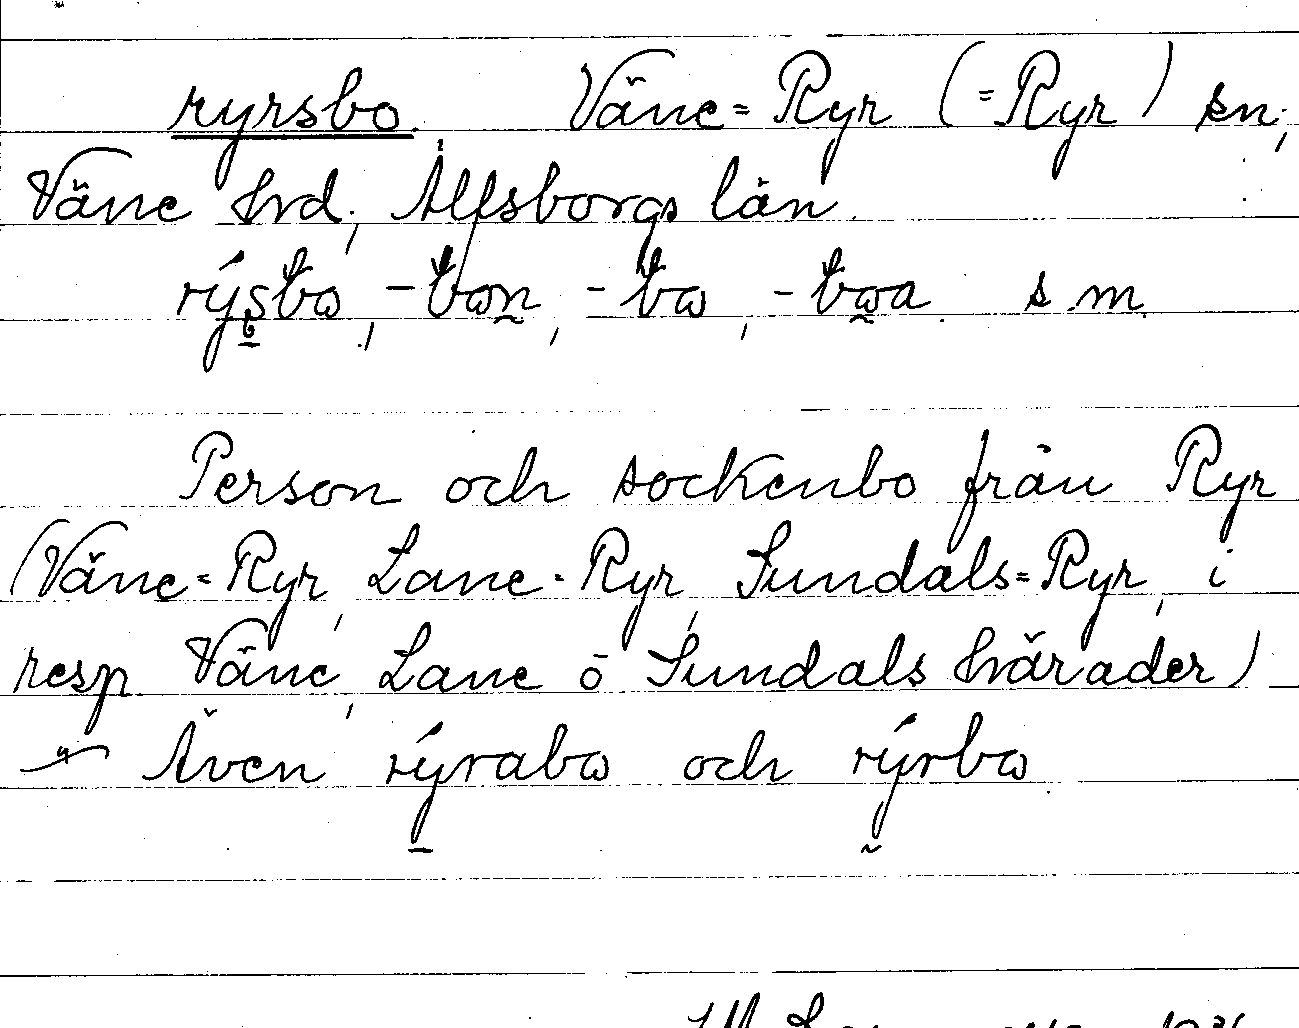 ryrsbo Väne=Ryr (=Ryr) sn,
Väne hrd, Älfsborgs län
rýsbω, -bωn, -bω, -bωa. s. m.
Person och sockenbo från Ryr
(Väne=Ryr, Lane-Ryr, Sundals=Ryr, i
resp. Väne, Lane o Sundals härader)
Även rýrabω och rýrbω